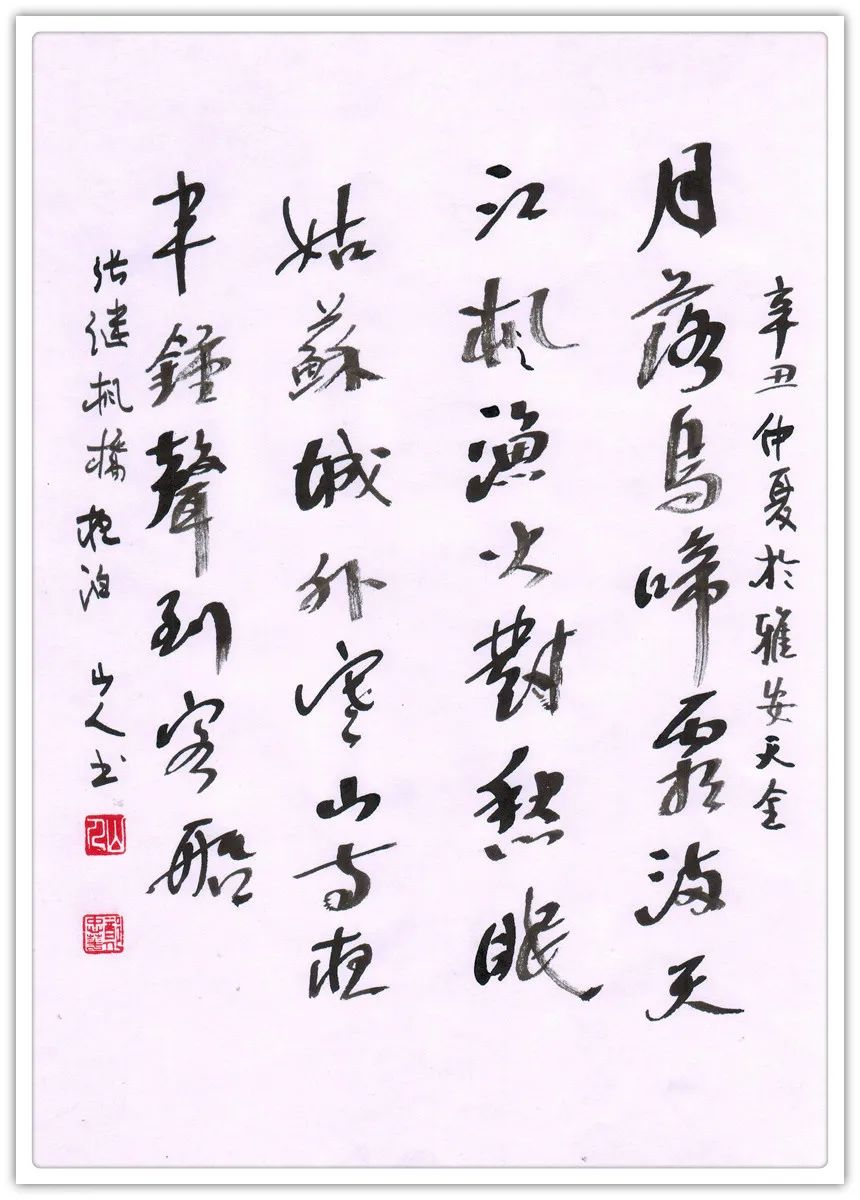 辛丑仲夏於雅安天全
月落烏啼霜满天
江枫渔火對愁眠
姑蘇城外寒山寺夜
半鐘聲到客船
张继枫橋夜泊 山人书
山人